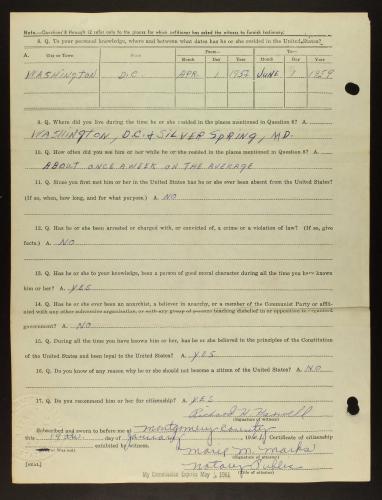 Note.—Questions 8 through 12 refer only to the places for which petitioner has asked the witness to furnish testimony.
8. Q. To your personal knowledge, where and between what dates has he or she resided in the United States?
A. City or Town State From— To—
Month Day Year Month Day Year
WASHINGTON D.C. APR. 1 1957 JUNE 1 1959
9. Q. Where did you live during the time he or she resided in the places mentioned in Question 8? A.
WASHINGTON, D.C. & SILVER SPRING, MD.
10. Q. How often did you see him or her while he or she resided in the places mentioned in Question 8? A.
ABOUT ONCE A WEEK ON THE AVERAGE
11. Q. Since you first met him or her in the United States has he or she ever been absent from the United States?
(If so, when, how long, and for what purpose.) A. NO
12. Q. Has he or she been arrested or charged with, or convicted of, a crime or a violation of law? (If so, give
facts.) A. NO
13. Q. Has he or she to your knowledge, been a person of good moral character during all the time you have known
him or her? A. YES
14. Q. Has he or she ever been an anarchist, a believer in anarchy, or a member of the Communist Party or affili-
ated with any other subversive organization, or with any group of persons teaching disbelief in or opposition to organized
government? A. NO
15. Q. During all the time you have known him or her, has he or she believed in the principles of the Constitution
of the United States and been loyal to the United States? A. YES
16. Q. Do you know of any reason why he or she should not become a citizen of the United States? A. NO
17. Q. Do you recommend him or her for citizenship? A. YES
Richard H.
(Signature of witness)
Subscribed and sworn to before me at Montgomery County
this 19th day of January, 196 Certificate of citizenship
exhibited by witness.
Mary M. Marks
(Signature of attestor)
[SEAL] Notary Public
My Commission Expires May 1961
(Title of attestor)